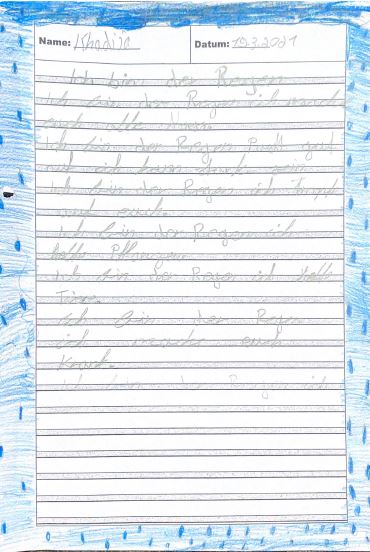 Name: Khadija Datum: 19.3.2021
Ich bin der Regen
Ich bin der Regen ich mache
euch alle
Ich bin der Regen gut
ich kann sein
Ich bin der Regen ich
auf euch.
Ich bin der Regen ich
helfe Pflanzen
Ich bin der Regen ich helfe
Tiere.
Ich bin der Regen
ich mache euch
Krank.
Ich bin der Regen ich